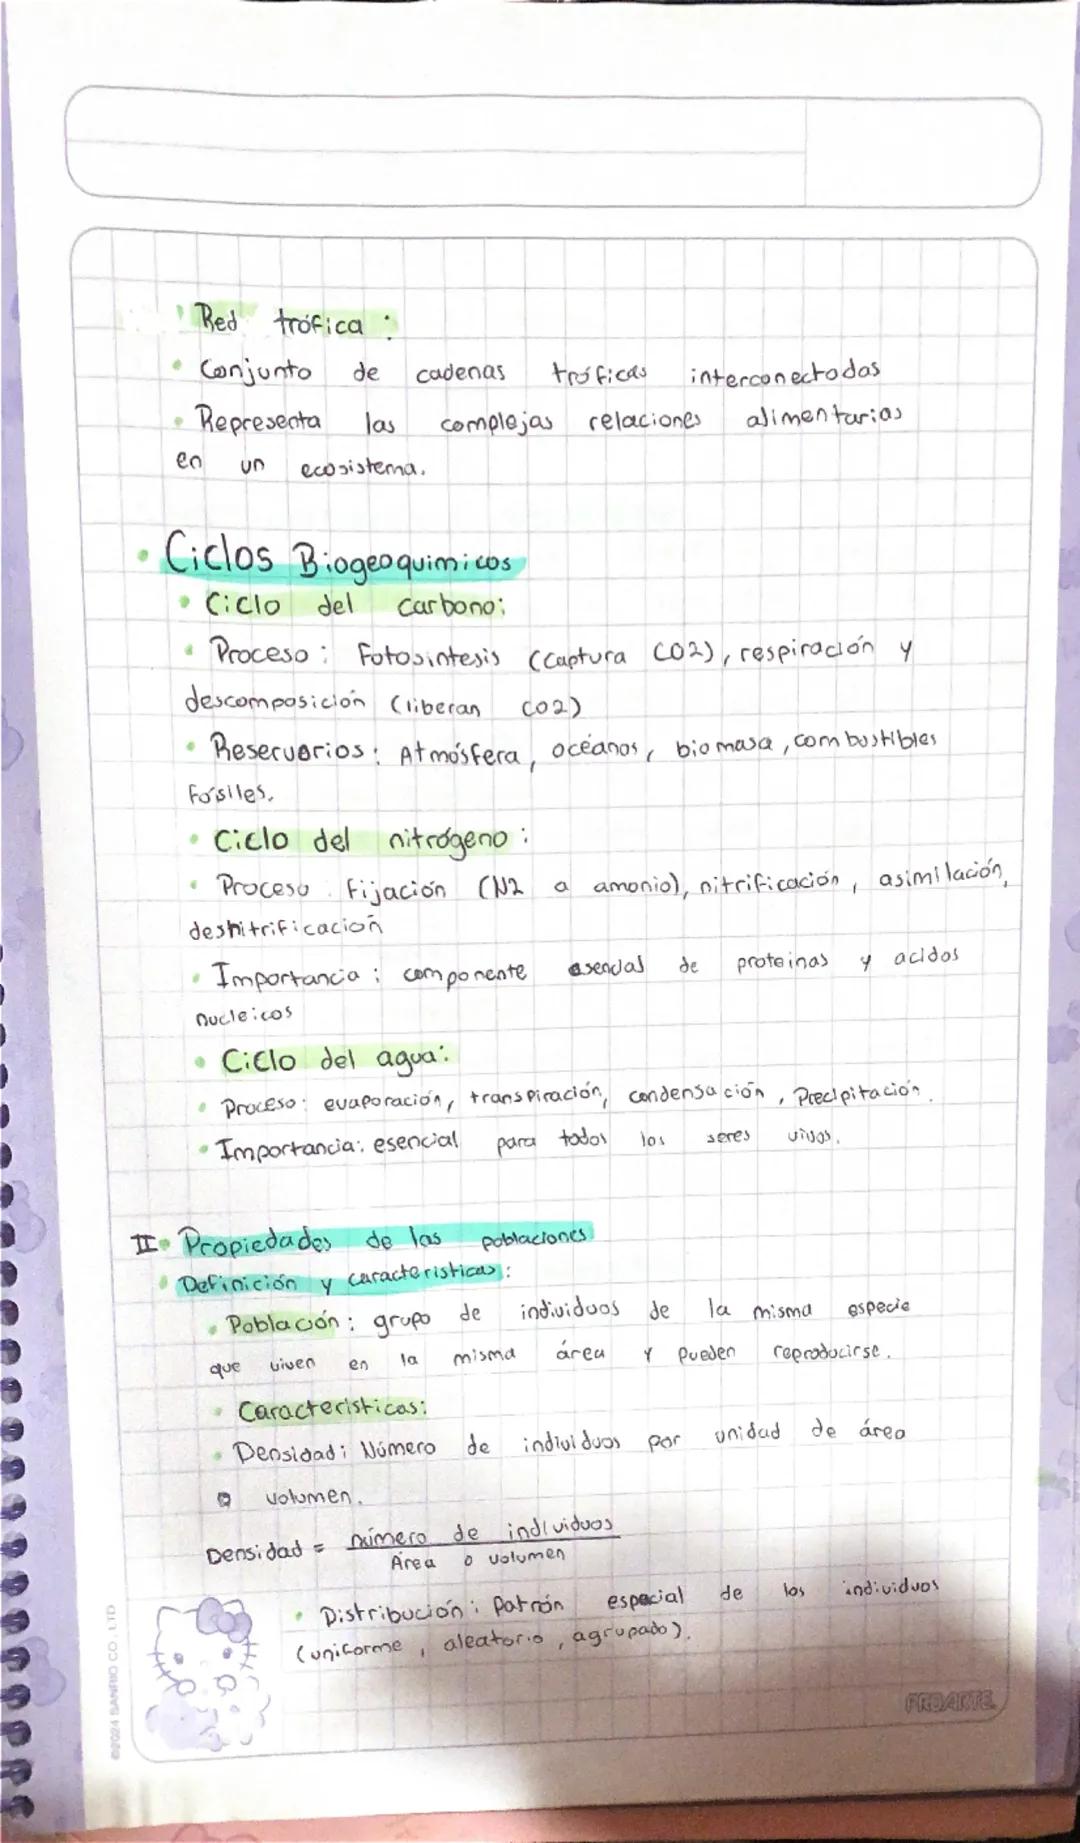 Red trófica :
• Conjunto de cadenas tróficas interconectadas
• Representa las complejas relaciones alimentarias
en un ecosistema.
• Ciclos Biogeoquimicos
• Ciclo del carbono:
• Proceso : Fotosintesis (captura CO2), respiración y
descomposición (liberan CO2)
• Reservorios : Atmósfera, océanos, biomasa, combustibles
fósiles.
• Ciclo del nitrógeno :
• Proceso : Fijación (N2 a amonio), nitrificación, asimilación,
desnitrificación
• Importancia : componente de proteinas y acidos
nucleicos
• Ciclo del agua:
• Proceso: evaporación, transpiración, condensación, Precipitación.
• Importancia: esencial para todos los seres vivos.
II• Propiedades de las poblaciones
• Definición y caracteristicas :
• Población : grupo de individuos de la misma especie
que viven en la misma área y pueden reproducirse.
• Caracteristicas:
• Densidad : Número de individuos por unidad de área
o volumen.
Densidad = número de individuos
Área o volumen
• Distribución : Patrón espacial de los individuos
(uniforme, aleatorio, agrupado).
PROARTE
©2024 SANRIO CO., LTD